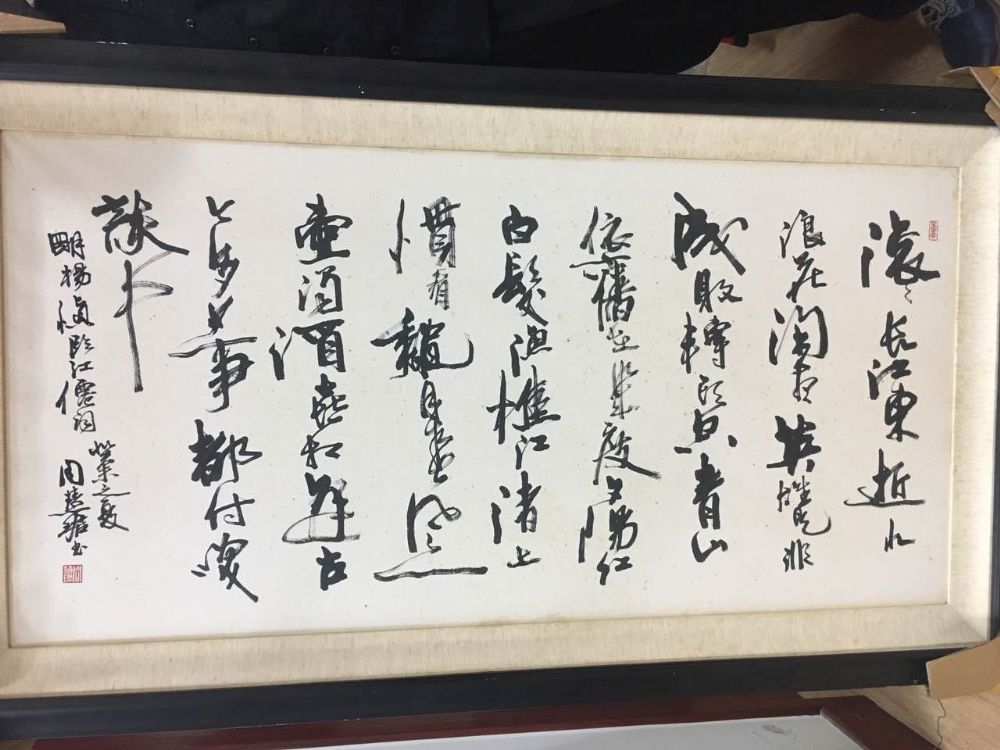 滾〻長江東逝水
浪花淘盡英雄是非
成敗轉頭空青山
依舊在幾度夕陽紅
白髮漁樵江渚上
慣看秋月春風一
壺濁酒喜相逢古
今多少事都付笑
談中
明楊慎臨江僊詞
癸未之夏
周慧珺書